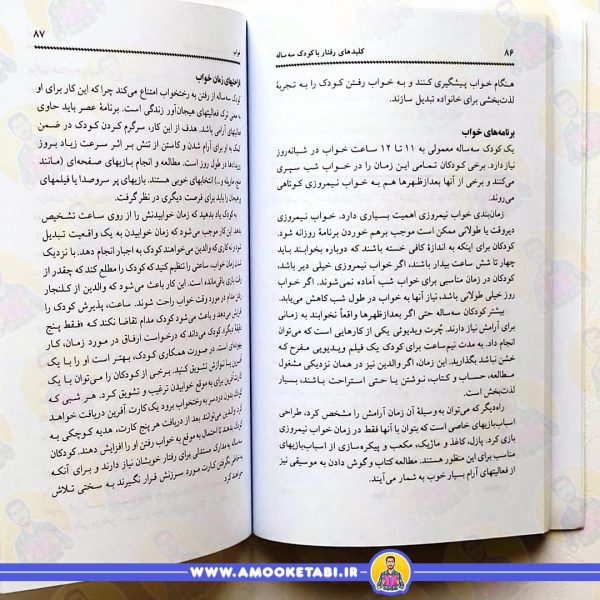 ۸۶
کلیدهای رفتار با کودک سه‌ساله
هنگام خواب پیشگیری کنند و به خواب رفتن کودک را به تجربهٔ
لذت‌بخشی برای خانواده تبدیل سازند.
برنامه‌های خواب
یک کودک سه‌ساله معمولی به ۱۱ تا ۱۲ ساعت خواب در شبانه‌روز
نیاز دارد. برخی کودکان تمامی این زمان را در خواب شب سپری
می‌کنند و برخی از آنها بعدازظهرها هم به خواب نیمروزی کوتاهی
می‌روند.
زمان‌بندی خواب نیمروزی اهمیت بسیاری دارد. خواب نیمروزی
دیروقت یا طولانی ممکن است موجب برهم خوردن برنامهٔ روزانه شود.
کودکان برای اینکه به اندازهٔ کافی خسته باشند که دوباره بخوابند باید
چهار تا شش ساعت بیدار باشند، اگر خواب نیمروزی خیلی دیر باشد،
کودکان در زمان مناسبی برای خواب شب آماده نمی‌شوند. اگر خواب
روز خیلی طولانی باشد، نیاز آنها به خواب در طول شب کاهش می‌یابد.
بیشتر کودکان سه‌ساله حتی اگر بعدازظهرها واقعاً نخوابند به زمانی
برای آرامش نیاز دارند. چُرت ویدیوئی یکی از کارهایی است که می‌توان
انجام داد. به مدت نیم‌ساعت برای کودک یک فیلم ویدیویی مفرح که
خشن نباشد بگذارید. این زمان، اگر والدین نیز در همان نزدیکی مشغول
مطالعه، حساب و کتاب، نوشتن یا حتی استراحت باشند، بسیار
لذت‌بخش است.
راه‌دیگر که می‌توان به وسیلهٔ آن زمان آرامش را مشخص کرد، طراحی
اسباب‌بازیهای خاصی است که بتوان با آنها فقط در زمان خواب نیمروزی
بازی کرد. پازل، کاغذ و ماژیک، مکعب و پیکره‌سازی از اسباب‌بازیهای
مناسب برای این منظور هستند. مطالعه کتاب و گوش دادن به موسیقی نیز
از فعالیتهای آرام بسیار خوب به شمار می‌آیند.
خواب
۸۷
زمان خواب
کودک سه‌ساله از رفتن به رختخواب امتناع می‌کند چرا که این کار برای او
به معنی ترک فعالیتهای هیجان‌آور زندگی است. برنامهٔ عصر باید حاوی
فعالیتهای آرامی باشد. هدف از این کار، سرگرم کردن کودک در ضمن
کمک به او برای آرام شدن و کاستن از تنش بر اثر سرعت زیاد بروز
در طول روز است. مطالعه و انجام بازیهای صفحه‌ای (مانند
و...) انتخابهای خوبی هستند. بازیهای پر سروصدا یا فیلمهای
را باید برای فرصت دیگری در نظر گرفت.
به کودک یاد بدهید که زمان خوابیدنش را از روی ساعت تشخیص
دهد. این کار موجب می‌شود که زمان خوابیدن به یک واقعیت تبدیل
شود نه کاری که والدین می‌خواهند کودک به اجبار انجام دهد. با نزدیک
شدن زمان خواب، ساعتی را تنظیم کنید که کودک را مطلع کند که چقدر از
وقت بازی باقی‌مانده است. این کار باعث می‌شود که والدین از کلنجار
رفتن مدام در مورد وقت خواب راحت شوند. ساعت، پذیرش کودک را
افزایش می‌دهد و باعث می‌شود کودک مدام تقاضا نکند که «فقط پنج
دقیقهٔ دیگر» کودک می‌داند که درخواست ارفاق در مورد زمان، کار
نیست. در صورت همکاری کودک، بهتر است او را با یک
آفرین یا نوازش تشویق کنید. برخی از کودکان را می‌توان با یک
کارت آفرین برای به موقع خوابیدن ترغیب و تشویق کرد. هر شبی که
کودک بدون دردسر به رختخواب برود یک کارت آفرین دریافت خواهد
کرد. والدین می‌توانند بعد از دریافت هر پنج کارت، هدیه کوچکی به
بدهند تا احتمال به موقع به خواب رفتن او را افزایش دهند. کودکان
سه‌ساله به مدارک مستدلی برای رفتار خویشان نیاز دارند و برای آنکه
نگرفتن کارت مورد سرزنش قرار نگیرند به سختی تلاش
خواهند کرد.
WWW.AMOOKETABI.IR